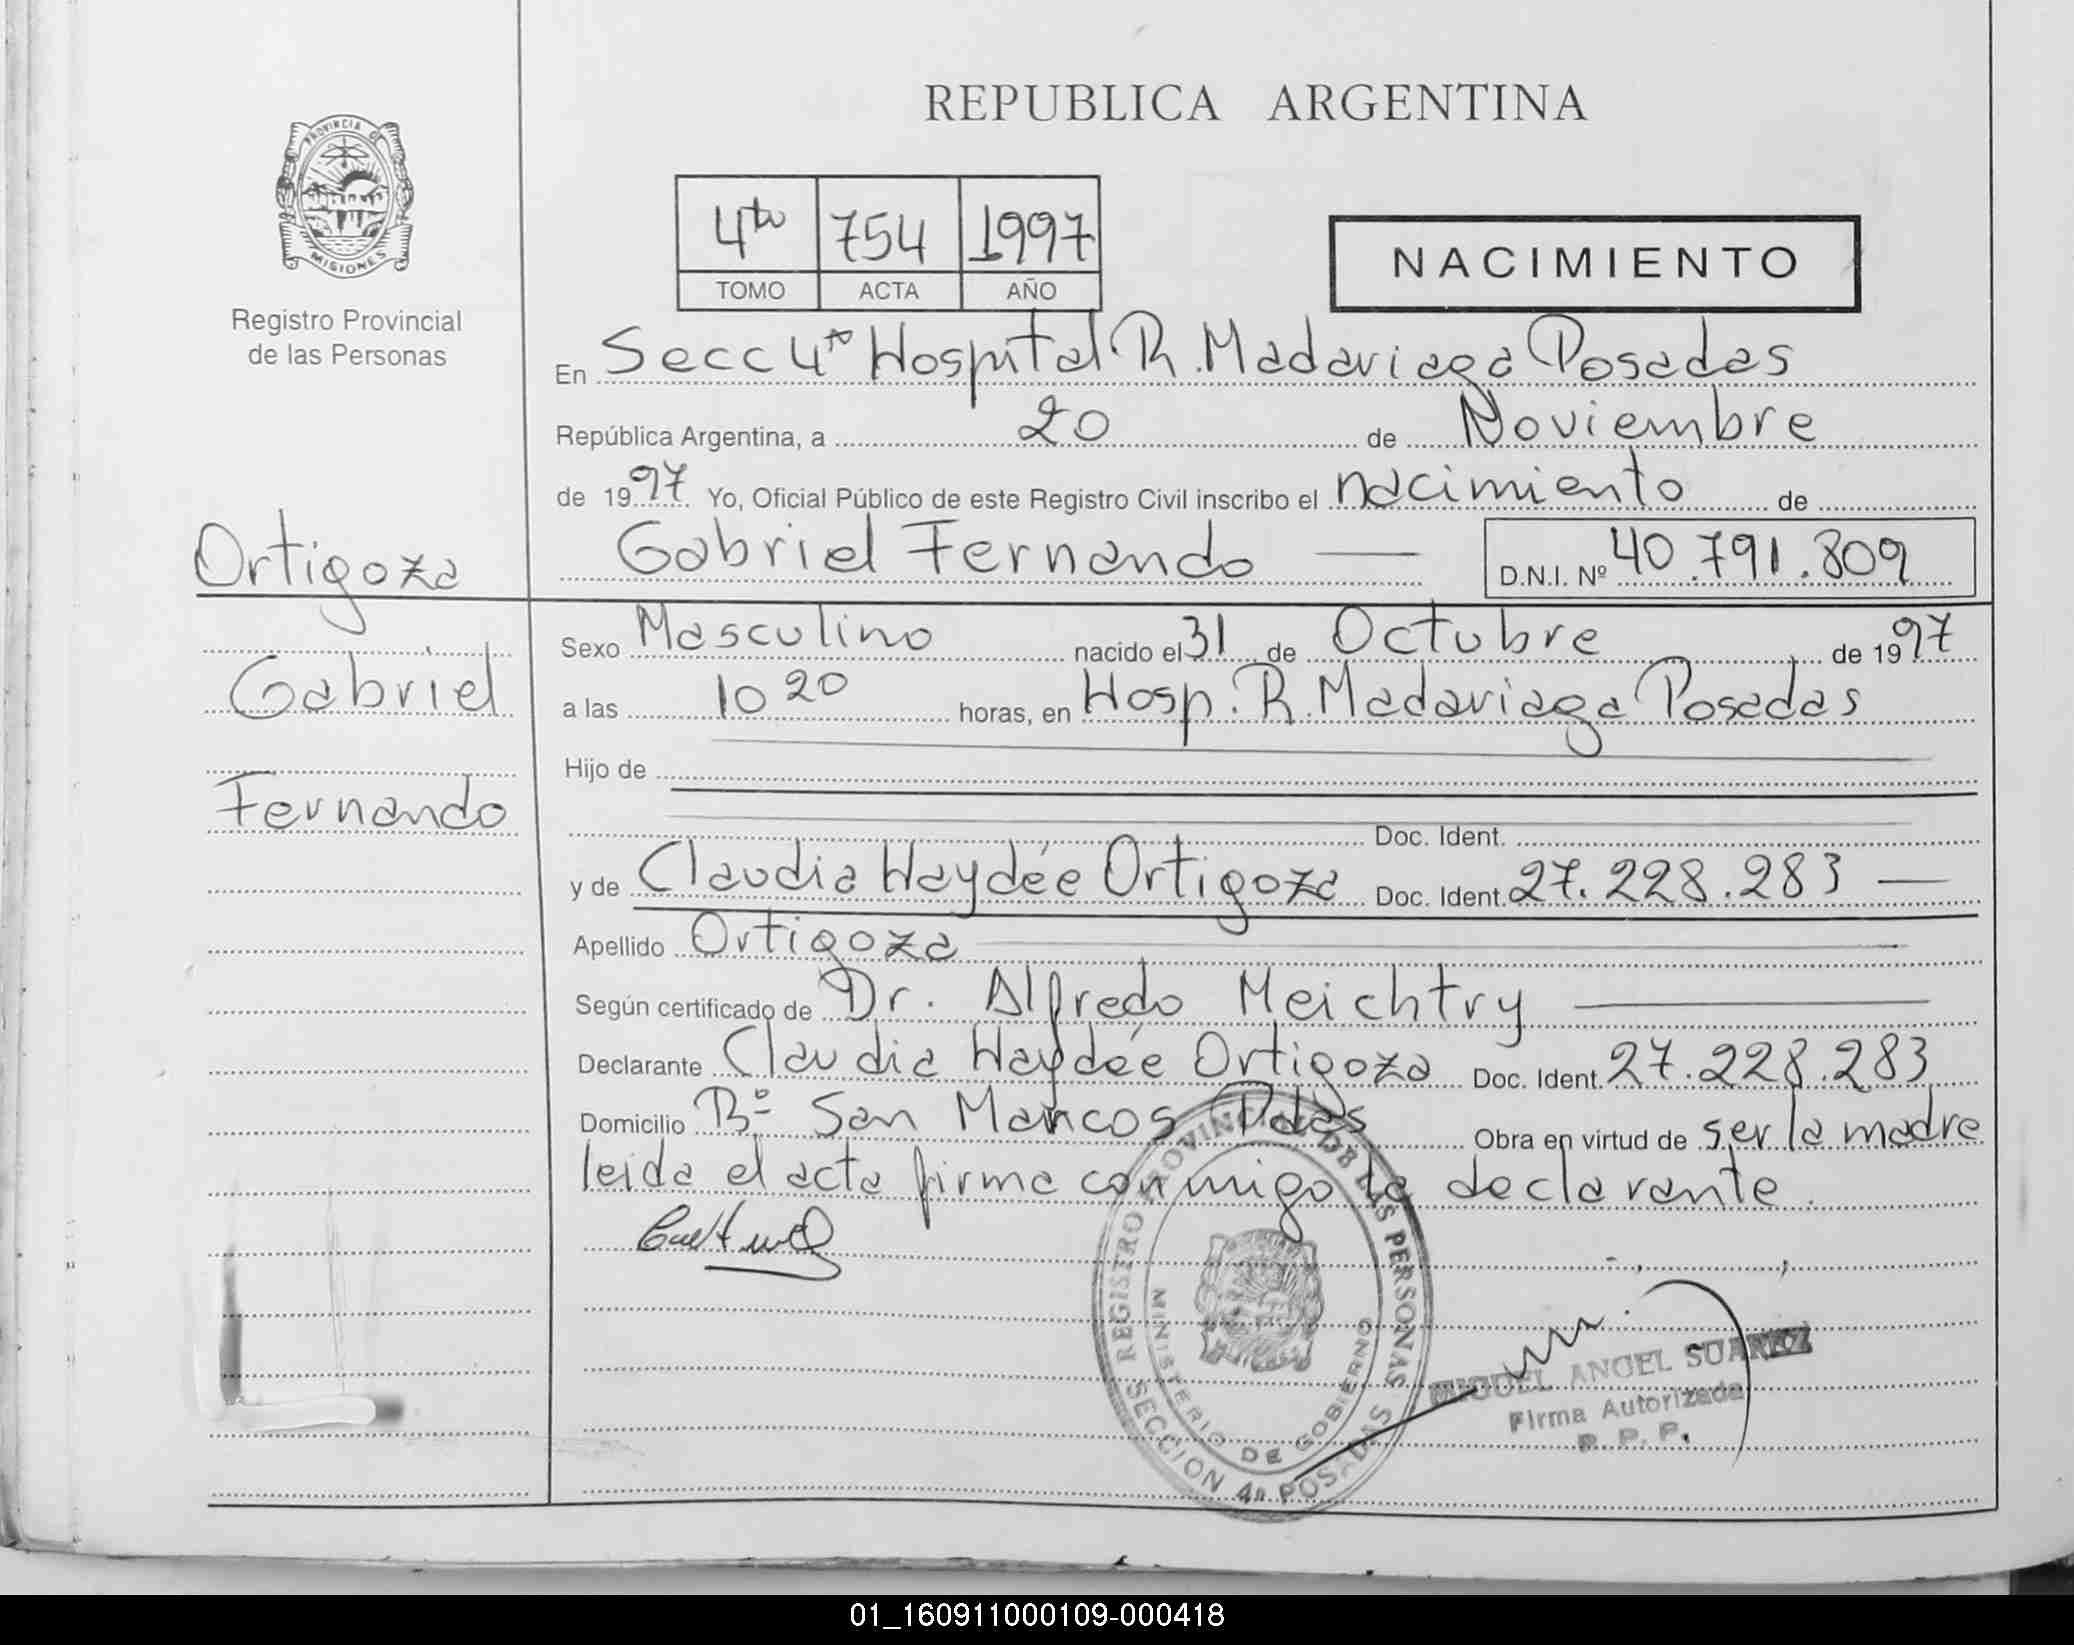 REPUBLICA ARGENTINA
PROVINCIA DE
MISIONES
Registro Provincial
de las Personas
4to 754 1997
TOMO ACTA AÑO
NACIMIENTO
En Secc 4ta Hospital R. Madariaga Posadas
República Argentina, a 20 de Noviembre
de 1997 Yo, Oficial Público de este Registro Civil inscribo el nacimiento de
Gabriel Fernando D.N.I. Nº 40.791.809
Ortigoza
Gabriel
Fernando
Sexo Masculino nacido el 31 de Octubre de 1997
a las 10 20 horas, en Hosp. R. Madariaga Posadas
Hijo de
Doc. Ident.
y de Claudia Haydée Ortigoza Doc. Ident. 27.228.283
Apellido Ortigoza
Según certificado de Dr. Alfredo Meichtry
Declarante Claudia Haydée Ortigoza Doc. Ident. 27.228.283
Domicilio Bº San Marcos Pdas Obra en virtud de ser la madre
leida el acta firma conmigo la declarante.
REGISTRO PROVINCIAL DE LAS PERSONAS
MINISTERIO DE GOBIERNO
SECCION 4ª POSADAS
MIGUEL ANGEL SUAREZ
Firma Autorizada
R. P. P.
01_160911000109-000418